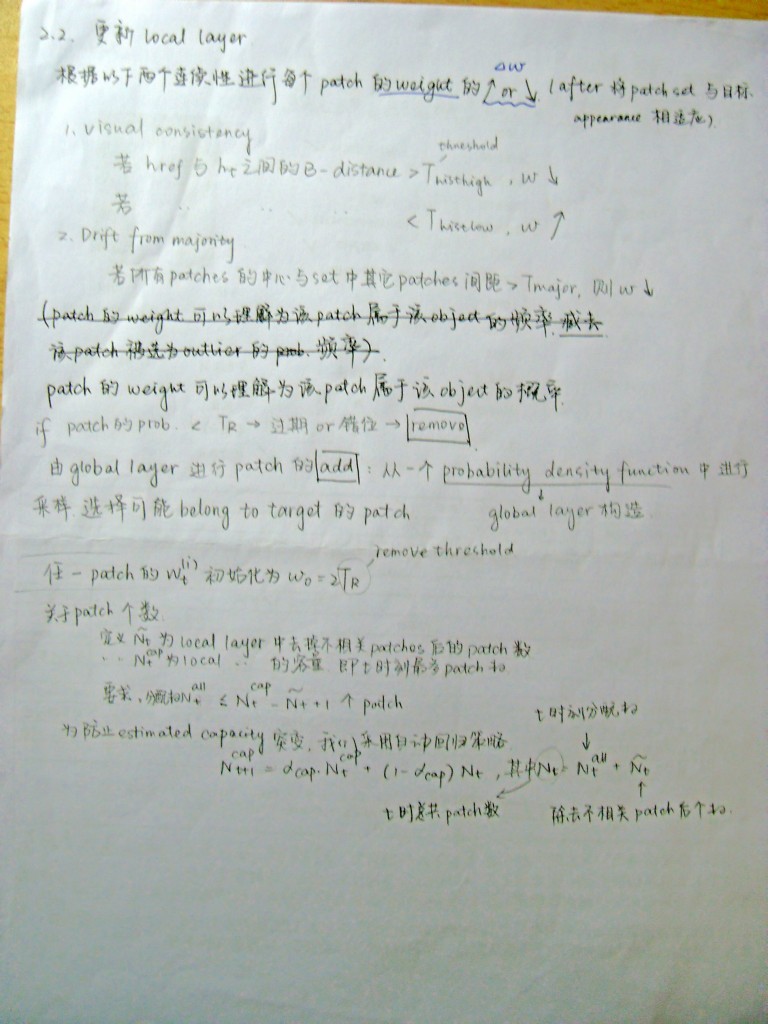 2.2. 更新 local layer
Δw
根据以下两个连续性进行每个 patch 的 weight 的 ↑ or ↓ (after 将 patch set 与目标
appearance 相适应)
1. visual consistency
threshold
若 href 与 ht 之间的 B-distance > Thisthigh, w ↓
若 ‥ ‥ ‥ < Thistlow, w ↑
2. Drift from majority
若所有 patches 的中心与 set 中其它 patches 间距 > Tmajor, 则 w ↓
(patch 的 weight 可以理解为该 patch 属于该 object 的频率 减去
该 patch 被选为 outlier 的 prob. 频率).
patch 的 weight 可以理解为该 patch 属于该 object 的概率
if patch 的 prob. < TR → 过期 or 错位 → remove
由 global layer 进行 patch 的 add : 从一个 probability density function 中进行
采样, 选择可能 belong to target 的 patch
global layer 构造.
remove threshold
任一 patch 的 wt(i) 初始化为 w0 = 2TR
关于 patch 个数
定义 Ñt 为 local layer 中去掉不相关 patches 后的 patch 数
‥ Ntcap 为 local ‥ 的容量, 即 t 时刻最多 patch 数
要求, 分配数 Ntall ≤ Ntcap - Ñt + 1 个 patch
t 时刻分配数
为防止 estimated capacity 突变, 我们采用自动回归策略
Nt+1cap = αcap·Ntcap + (1-αcap) Nt, 其中 Nt = Ntall + Ñt
t 时总共 patch 数
除去不相关 patch 后个数.